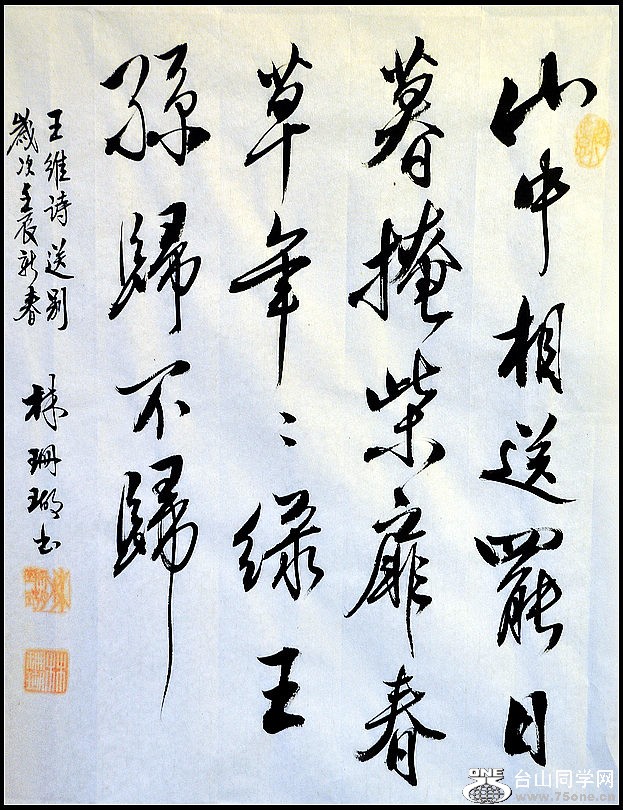 山中相送罷日
暮掩柴扉春
草年〻綠王
孫歸不歸
王維詩送别
歲次壬辰新春
林珊瑚书
ONE
台山同学网
www.75one.cn